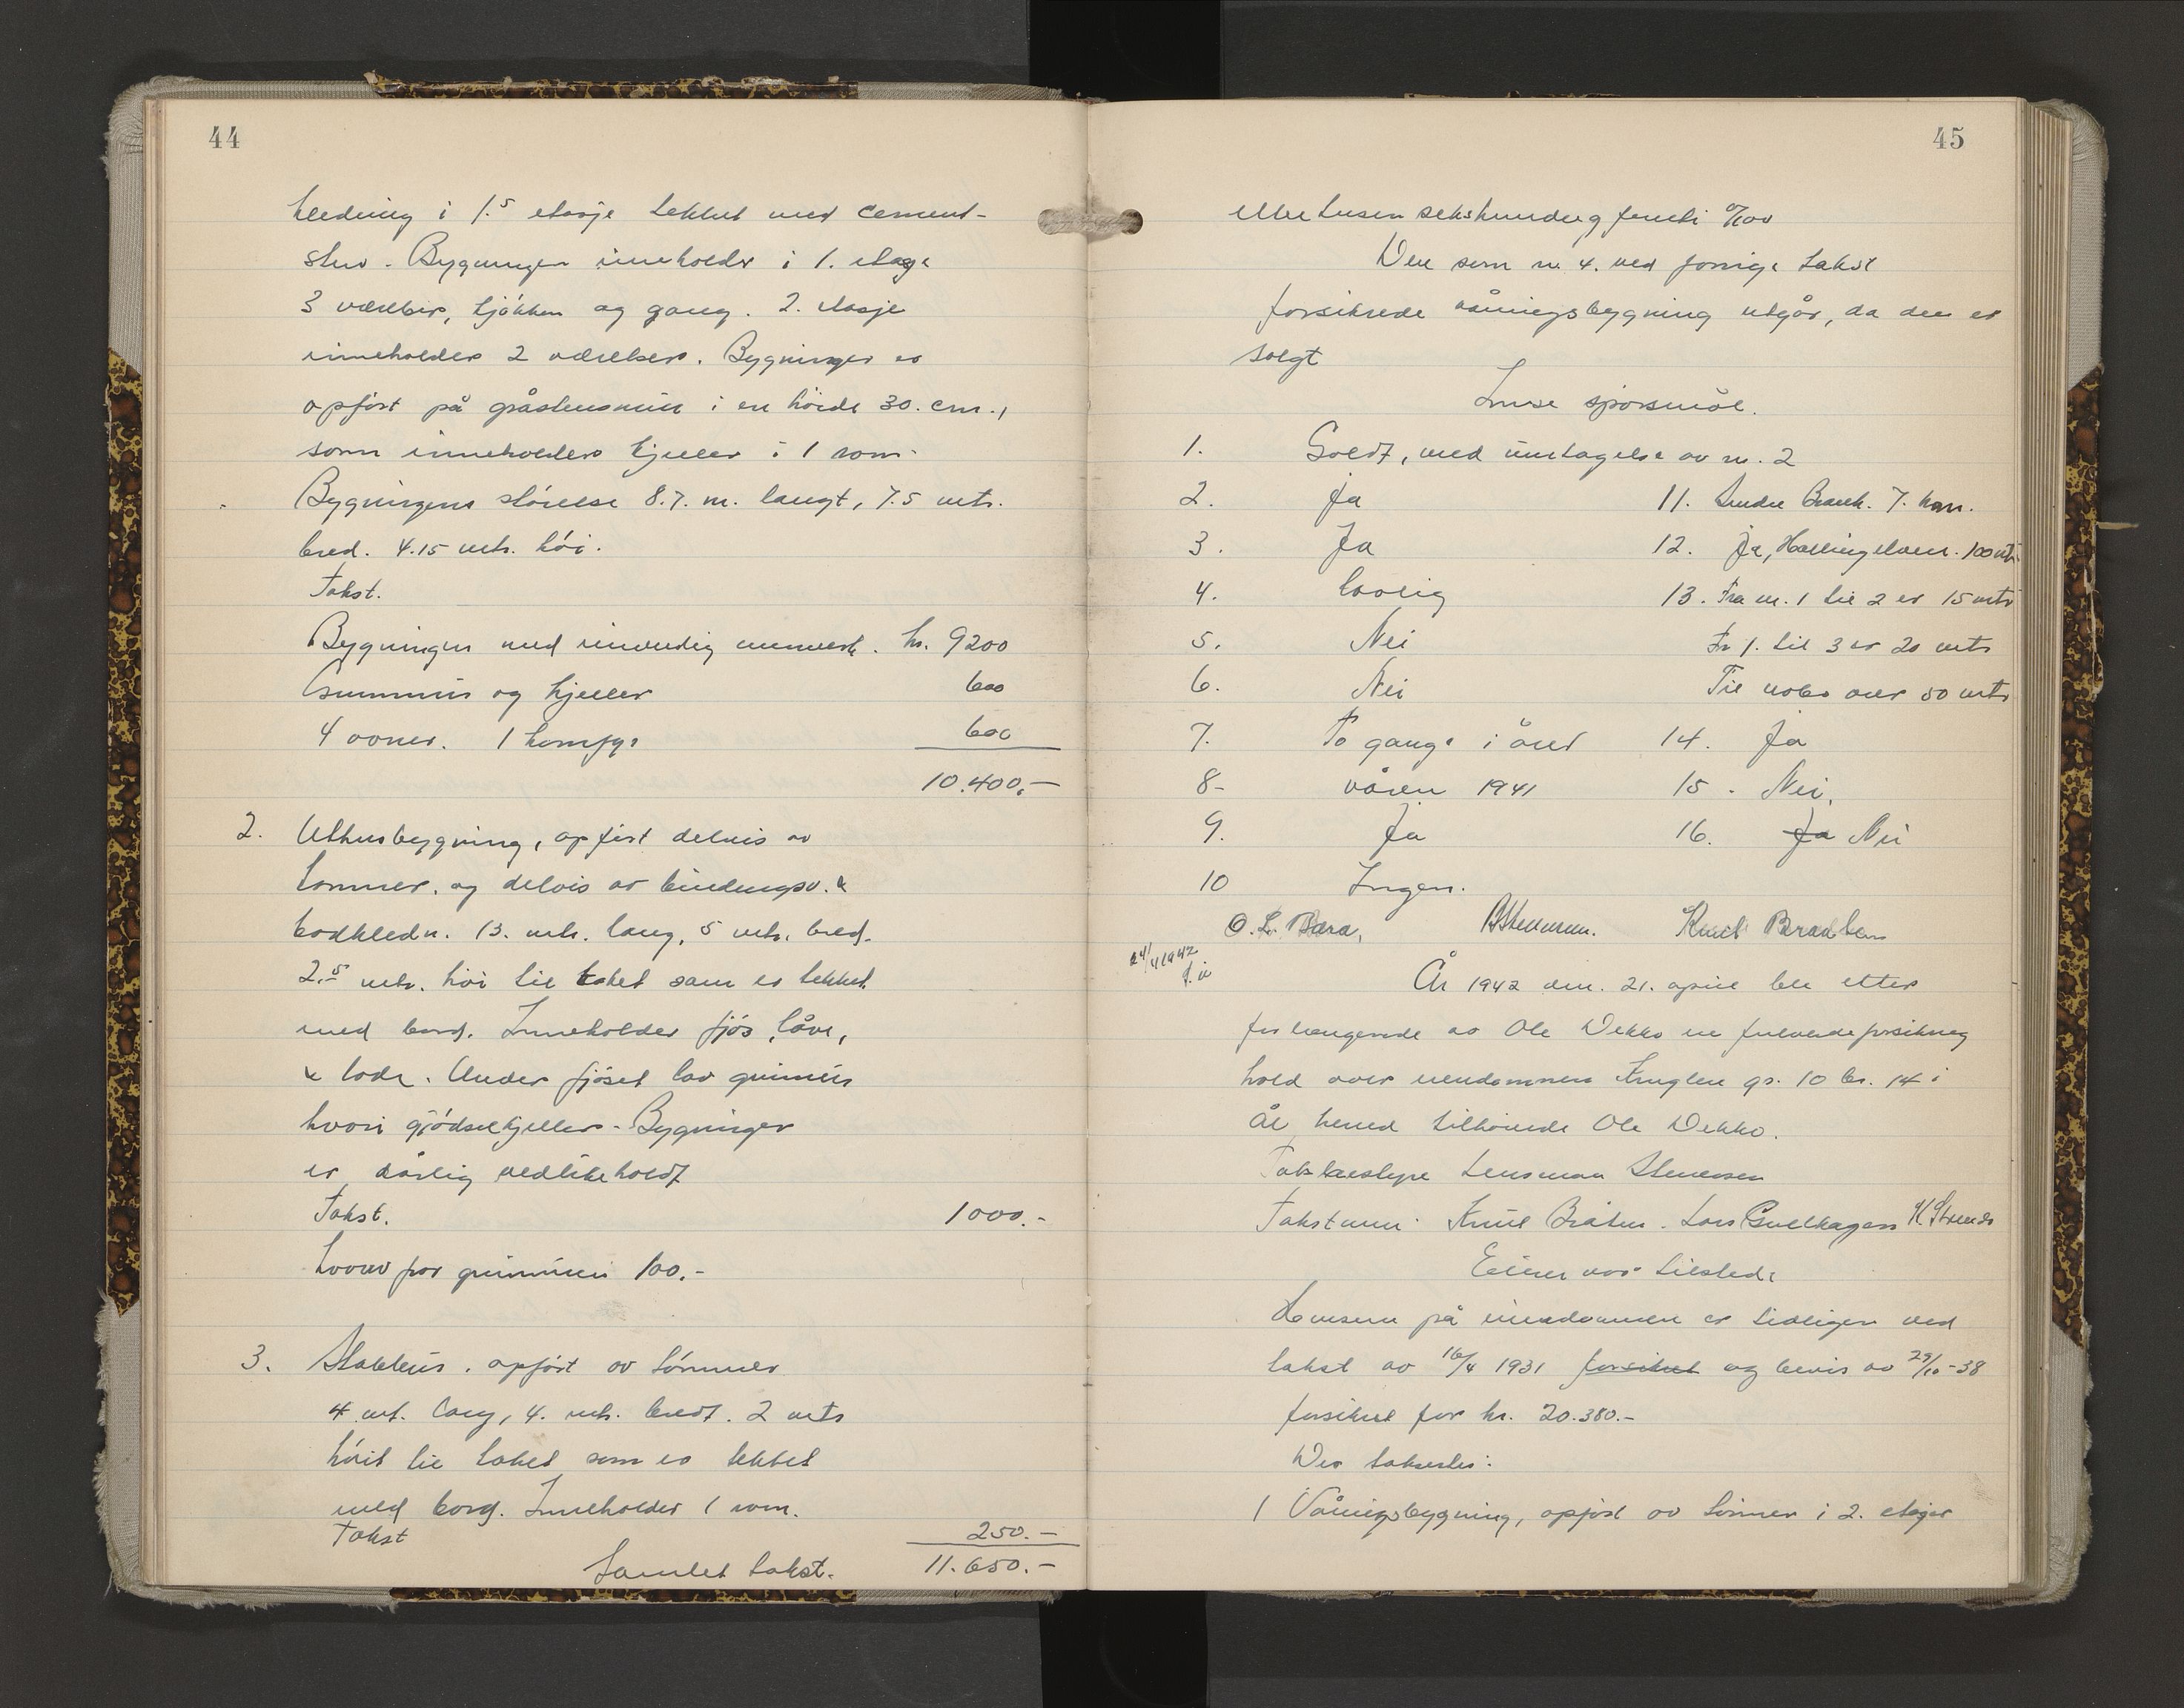 44
kledning i 1.5 etasje tekket med cement-
sten. Bygningen inneholder i 1. etage
3 værelser, kjøkken og gang. 2. etasje
inneholder 2 værelser. Bygningen er
opført på gråstensmur i en høide 30. cm.,
som inneholder kjeller i 1 rom.
Bygningens størelse 8.7. m. langt, 7.5 mtr.
bred. 4.15 mtr. høi.
Takst.
Bygningen med innvendig murverk. kr. 9200
Grunnmur og kjeller 600
4 ovner. 1 komfyr 600
10.400,-
2. Uthusbygning, opført delvis av
tømmer, og delvis av bindingsv. &
bordkledn. 13. mtr. lang, 5 mtr. bred.
2.5 mtr. høi til taket som er tekket
med bord. Inneholder fjøs, låve,
& lade. Under fjøset lav grunmur
hvori gjødselkjeller. Bygningen
er dårlig vedlikeholdt
Takst. 1000.-
hvorav for grunmuren 100.-
3. Stabbur. opført av tømmer
4 mt. lang, 4. mtr. bredt. 2 mtr
høit til taket som er tekket
med bord. Inneholder 1 rom.
Takst 250.-
Samlet takst. 11.650.-
45
elletusen sekshundreg femti 0/100
Den som nr. 4. ved forrige takst
forsikrede våningsbygning utgår, da den er
solgt
Innse spørsmål.
1. Godt, med undtagelse av nr. 2
2. Ja 11. Søndre Brank. 7. km.
3. Ja 12. Ja, Hallingelven. 100 mtr.
4. lovlig 13. Fra nr. 1 til 2 er 15 mtr
5. Nei Fr 1. til 3 er 20 mtr
6. Nei Til nabo over 50 mtr
7. To gange i året 14. Ja
8- våren 1941 15. Nei.
9. Ja 16. Ja Nei
10 Ingen.
O. L. Bara, Knut Braaten
24/4 1942
År 1942 den. 21. april ble etter
forlangende av Ole Dekko en forsikring
hold over eiendommen gr. 10 br. 14 i
Ål herred tilhørende Ole Dekko.
Takstbestyrer Lensmann Stenersen
Takstmenn: Knut Bråten. Lars
Eieren var tilstede
Husene på eiendommen er tidligere ved
takst av 16/4 1931 forsikret og bevis av 29/10-38
forsikret for kr. 20.380.-
Der takseres:
1 Våningsbygning, opført av tømmer i 2. etager